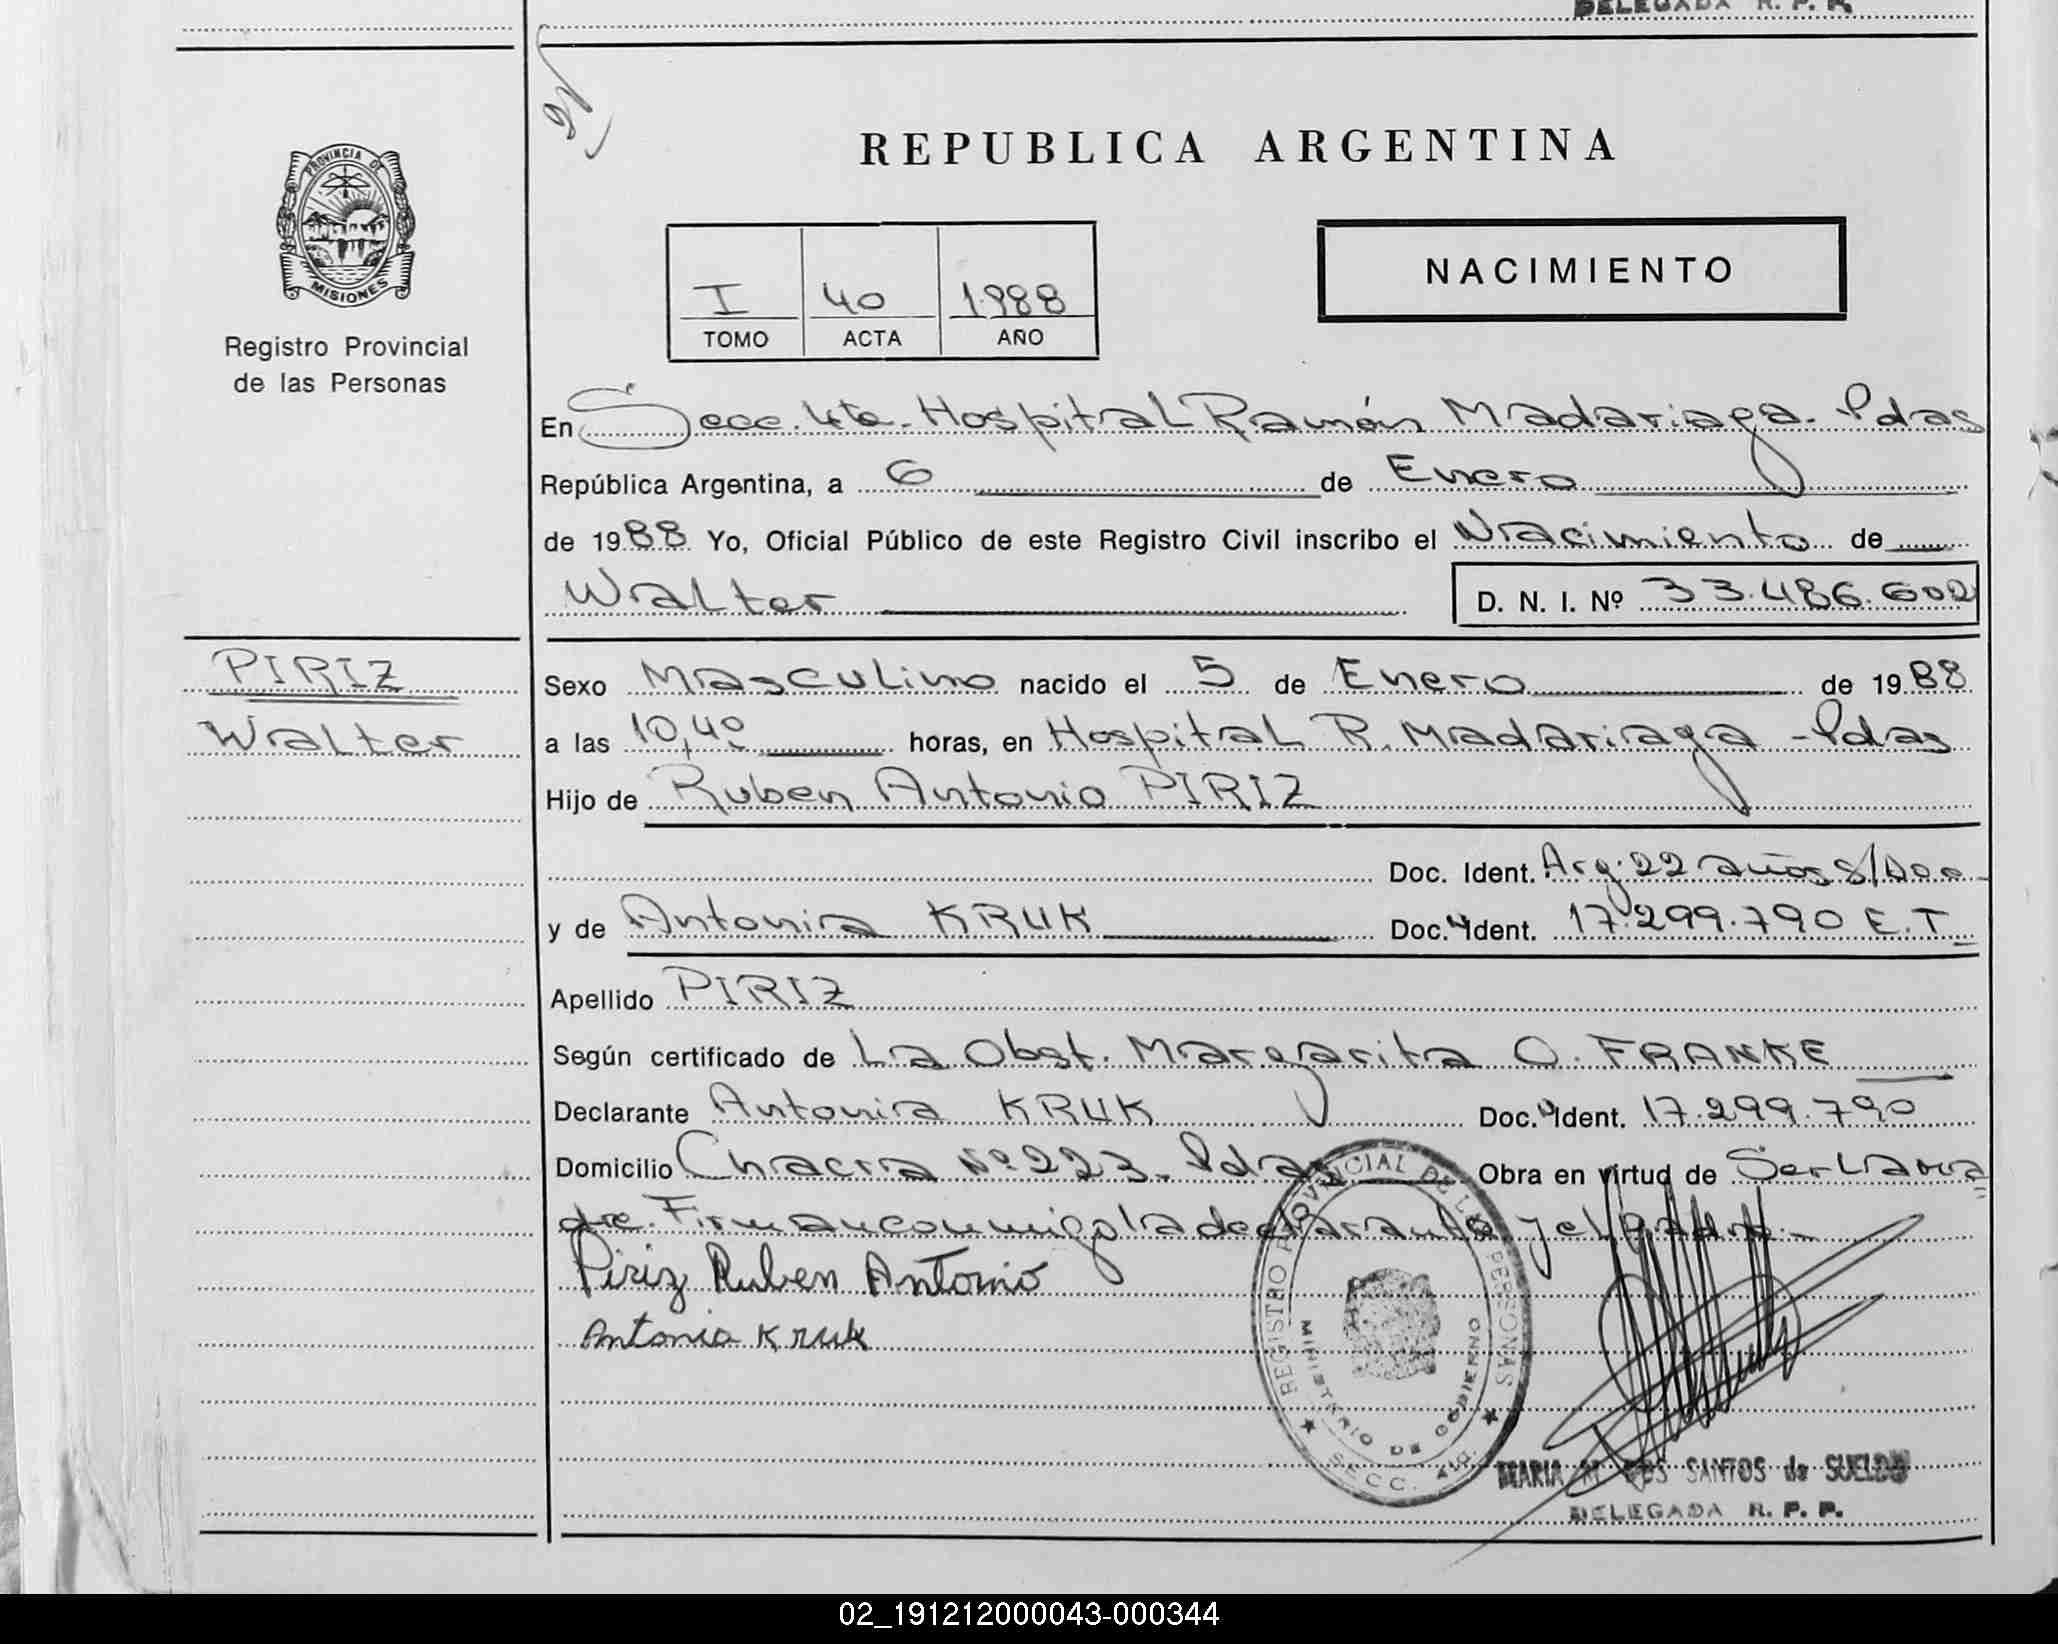 DELEGADA R. P. P.
PROVINCIA DE
MISIONES
Registro Provincial
de las Personas
REPUBLICA ARGENTINA
I 40 1988
TOMO ACTA AÑO
NACIMIENTO
En Secc. 4ta. Hospital Ramón Madariaga - Pdas
República Argentina, a 6 de Enero
de 1988 Yo, Oficial Público de este Registro Civil inscribo el Nacimiento de
Walter D. N. I. Nº 33.486.602
PIRIZ
Walter
Sexo Masculino nacido el 5 de Enero de 1988
a las 10,40 horas, en Hospital R. Madariaga - Pdas
Hijo de Ruben Antonio PIRIZ
Doc. Ident. Arg. 22 años s/Doc.
y de Antonia KRUK Doc. Ident. 17.299.790 E.T.
Apellido PIRIZ
Según certificado de La Obst. Margarita O. FRANKE
Declarante Antonia KRUK Doc. Ident. 17.299.790
Domicilio Chacra Nº 223 - Pdas Obra en virtud de Ser La ma
dre. Firman conmigo la declarante y el padre.-
Piriz Ruben Antonio
Antonia Kruk
REGISTRO PROVINCIAL DE LAS PERSONAS
MINISTERIO DE GOBIERNO
SECC. 4ta.
MARIA M. DOS SANTOS de SUELDO
DELEGADA R. P. P.
02_191212000043-000344